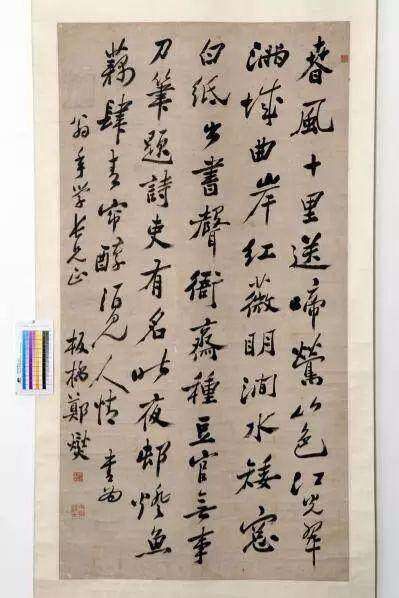 春風十里送啼鶯山色江光翠
滿城曲岸紅薇明澗水矮窓
白紙出書聲衙齋種豆官無事
刀筆題詩吏有名昨夜邨燈魚
藕肆青帘醇酒見人情 書為
翁年學長兄正 板橋鄭燮